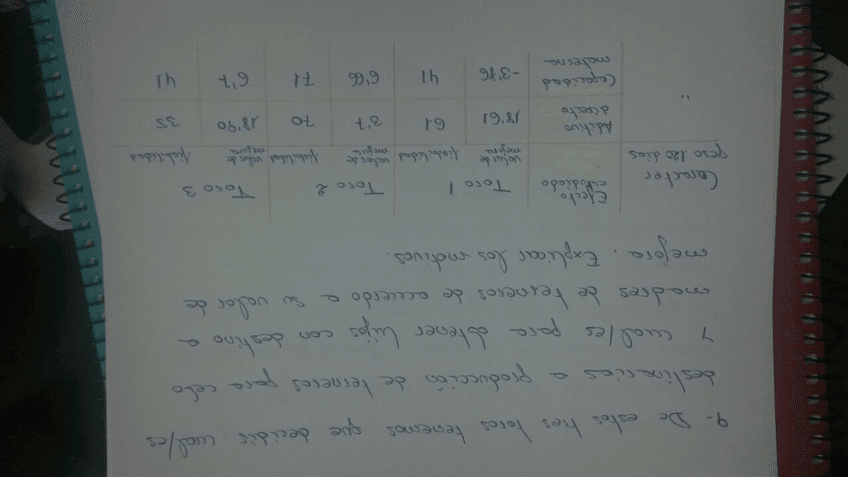 9- De estos tres toros tenemos que decidir cual/es
destinarías a producción de terneros para cebo
y cual/es para obtener hijas con destino a
madres de terneros de acuerdo a su valor de
mejora. Explicar los motivos.
Caracter Efecto estudiado Toro 1 Toro 2 Toro 3
peso 120 días valor de mejora fiabilidad valor de mejora fiabilidad valor de mejora fiabilidad
Aditivo directo 18'61 61 3'7 70 18'90 35
" Capacidad materna -3'76 41 6'66 71 6'7 41